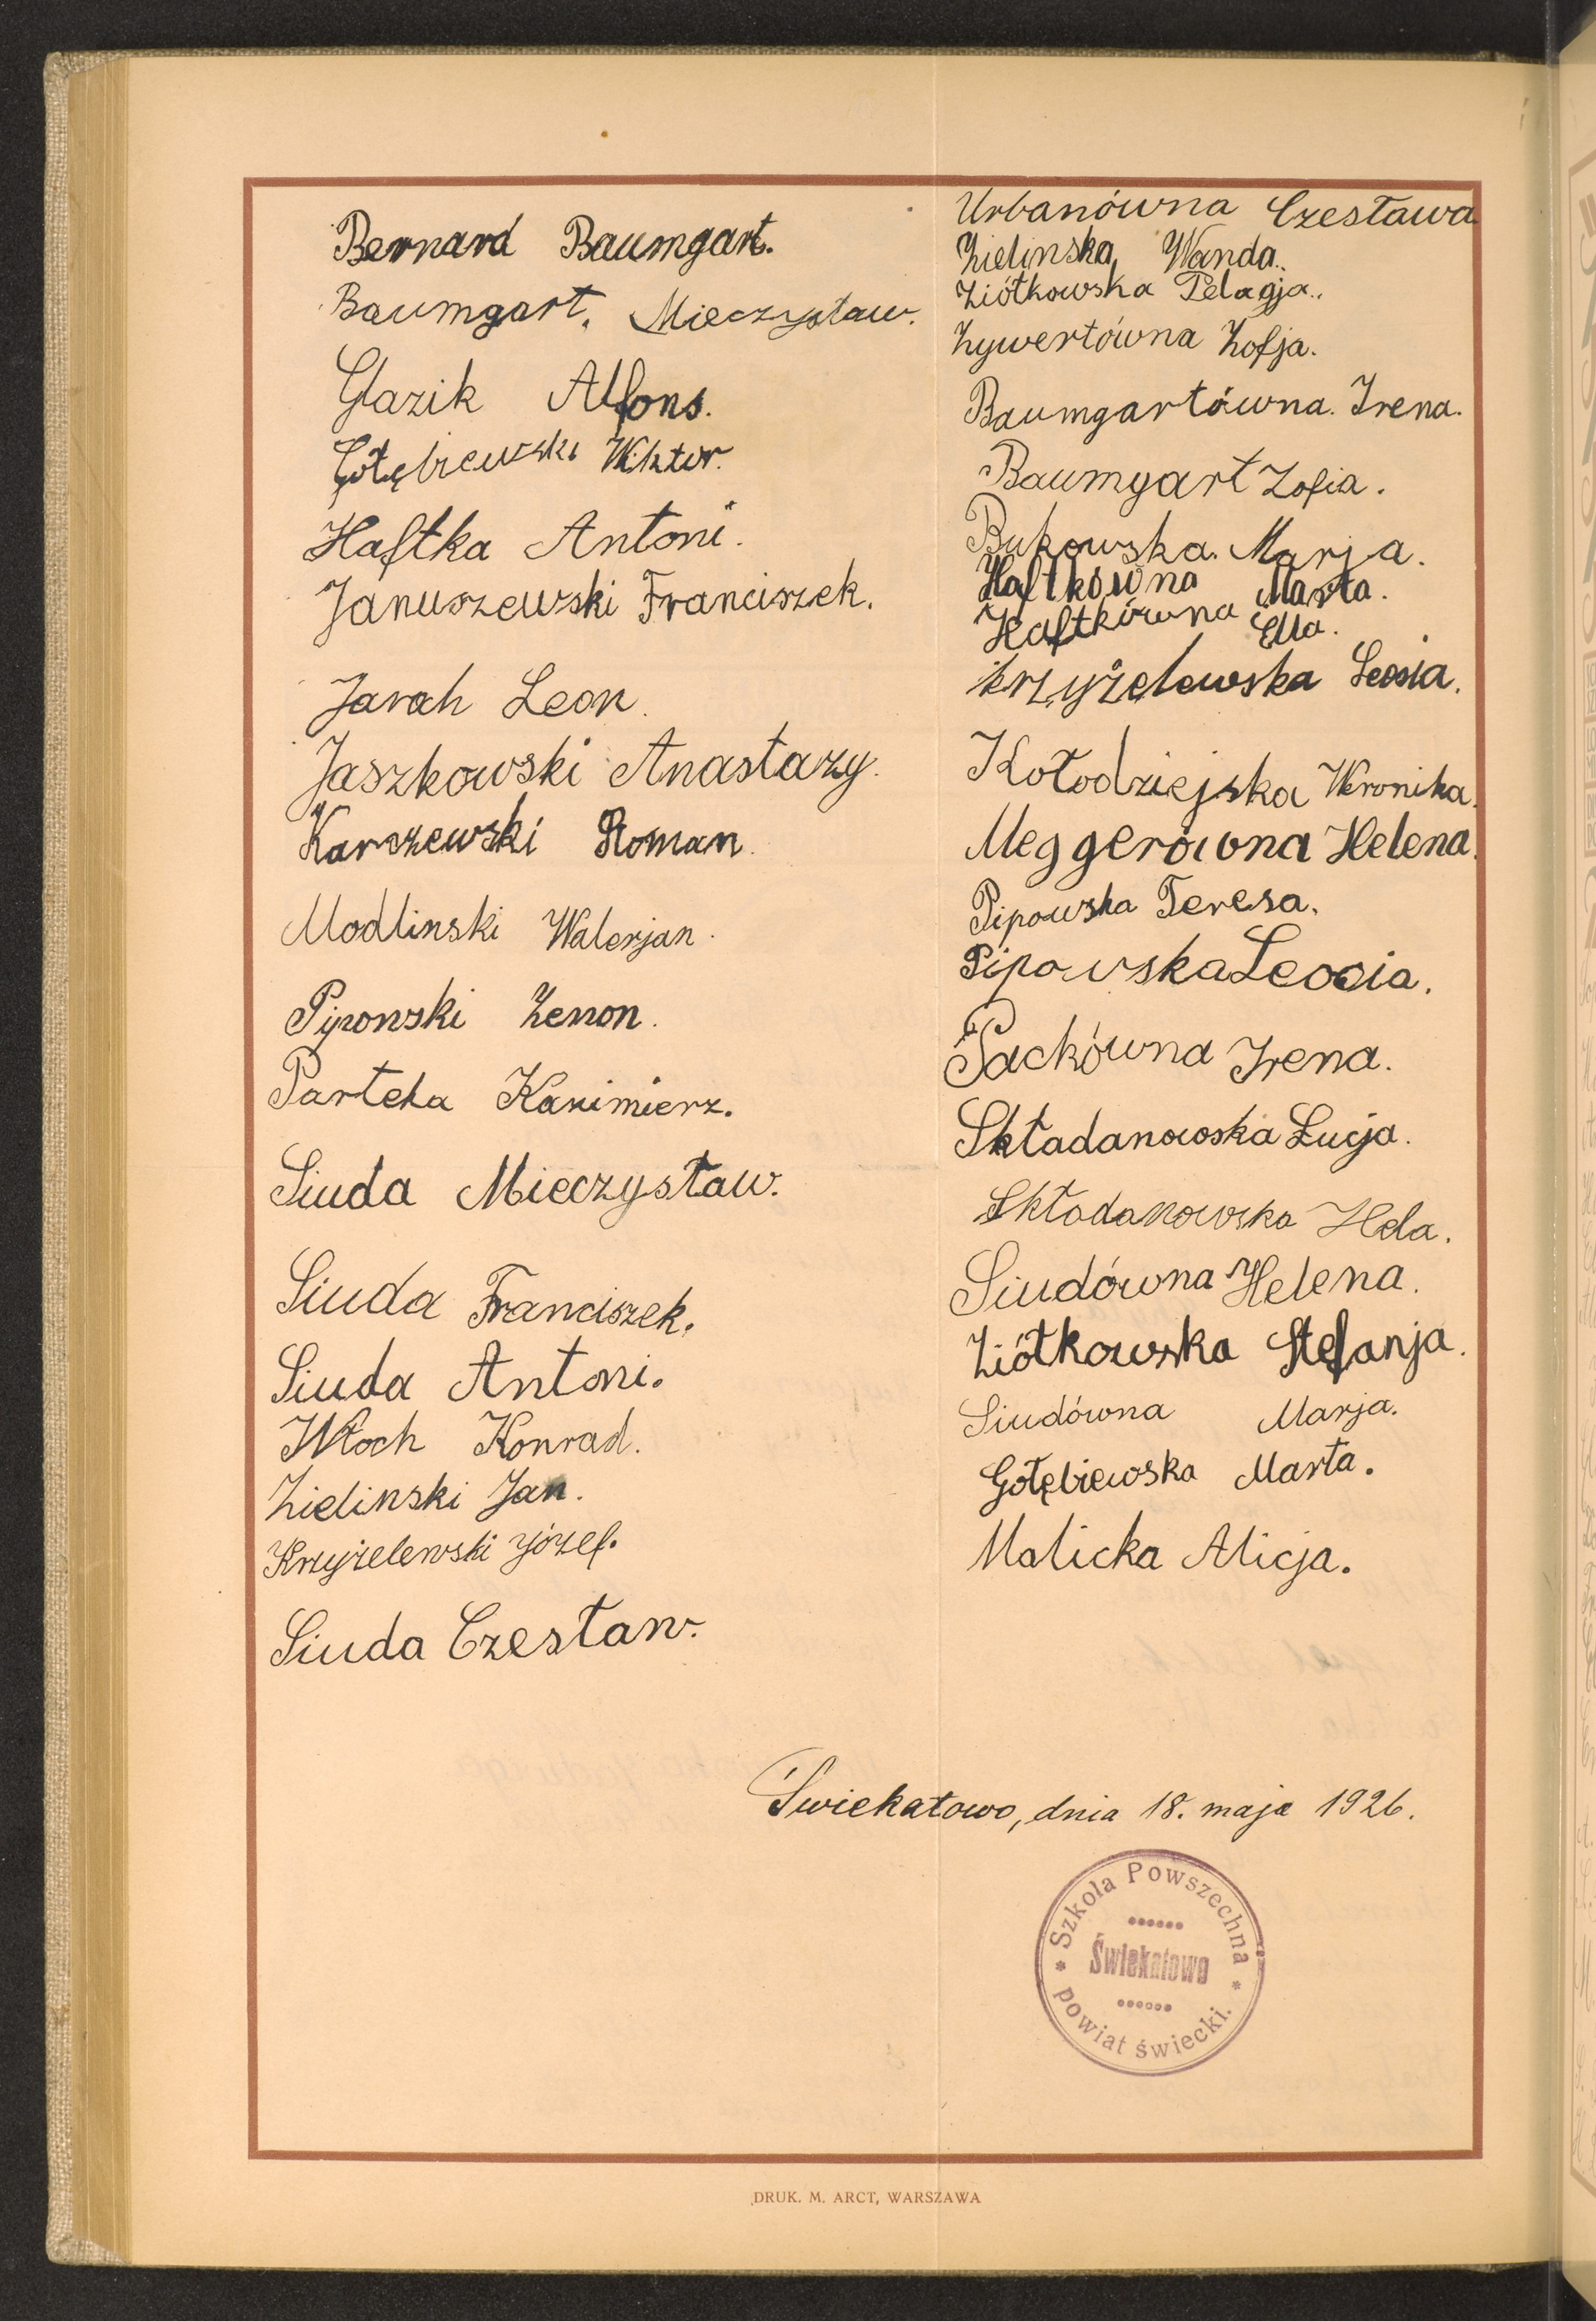 Bernard Baumgart.
Baumgart, Mieczysław.
Glazik Alfons.
Gołębiewski Wiktor.
Haftka Antoni.
Januszewski Franciszek.
Jarach Leon.
Jaszkowski Anastazy.
Karczewski Roman.
Modlinski Walerjan.
Pipowski Zenon.
Parteka Kazimierz.
Siuda Mieczysław.
Siuda Franciszek.
Siuda Antoni.
Włoch Konrad.
Zielinski Jan.
Krzyżelewski Józef.
Siuda Czesław.
Urbanówna Czesława
Zielinska Wanda.
Ziółkowska Pelagja.
Zywertówna Zofja.
Baumgartówna. Irena.
Baumgart Zofia.
Bukowska. Marja.
Haftkówna Marta.
Haftkówna Ella.
Krzyżelewska Leosia.
Kołodziejska Weronika.
Meggerówna Helena.
Pipowska Teresa.
Pipowska Leosia.
Packówna Irena.
Składanowska Łucja.
Składanowska Hela.
Siudówna Helena.
Ziółkowska Stefanja.
Siudówna Marja.
Gołębiewska Marta.
Malicka Alicja.
Świekatowo, dnia 18. maja 1926.
* Szkoła Powszechna *
Świekatowo
powiat świecki.
DRUK. M. ARCT, WARSZAWA